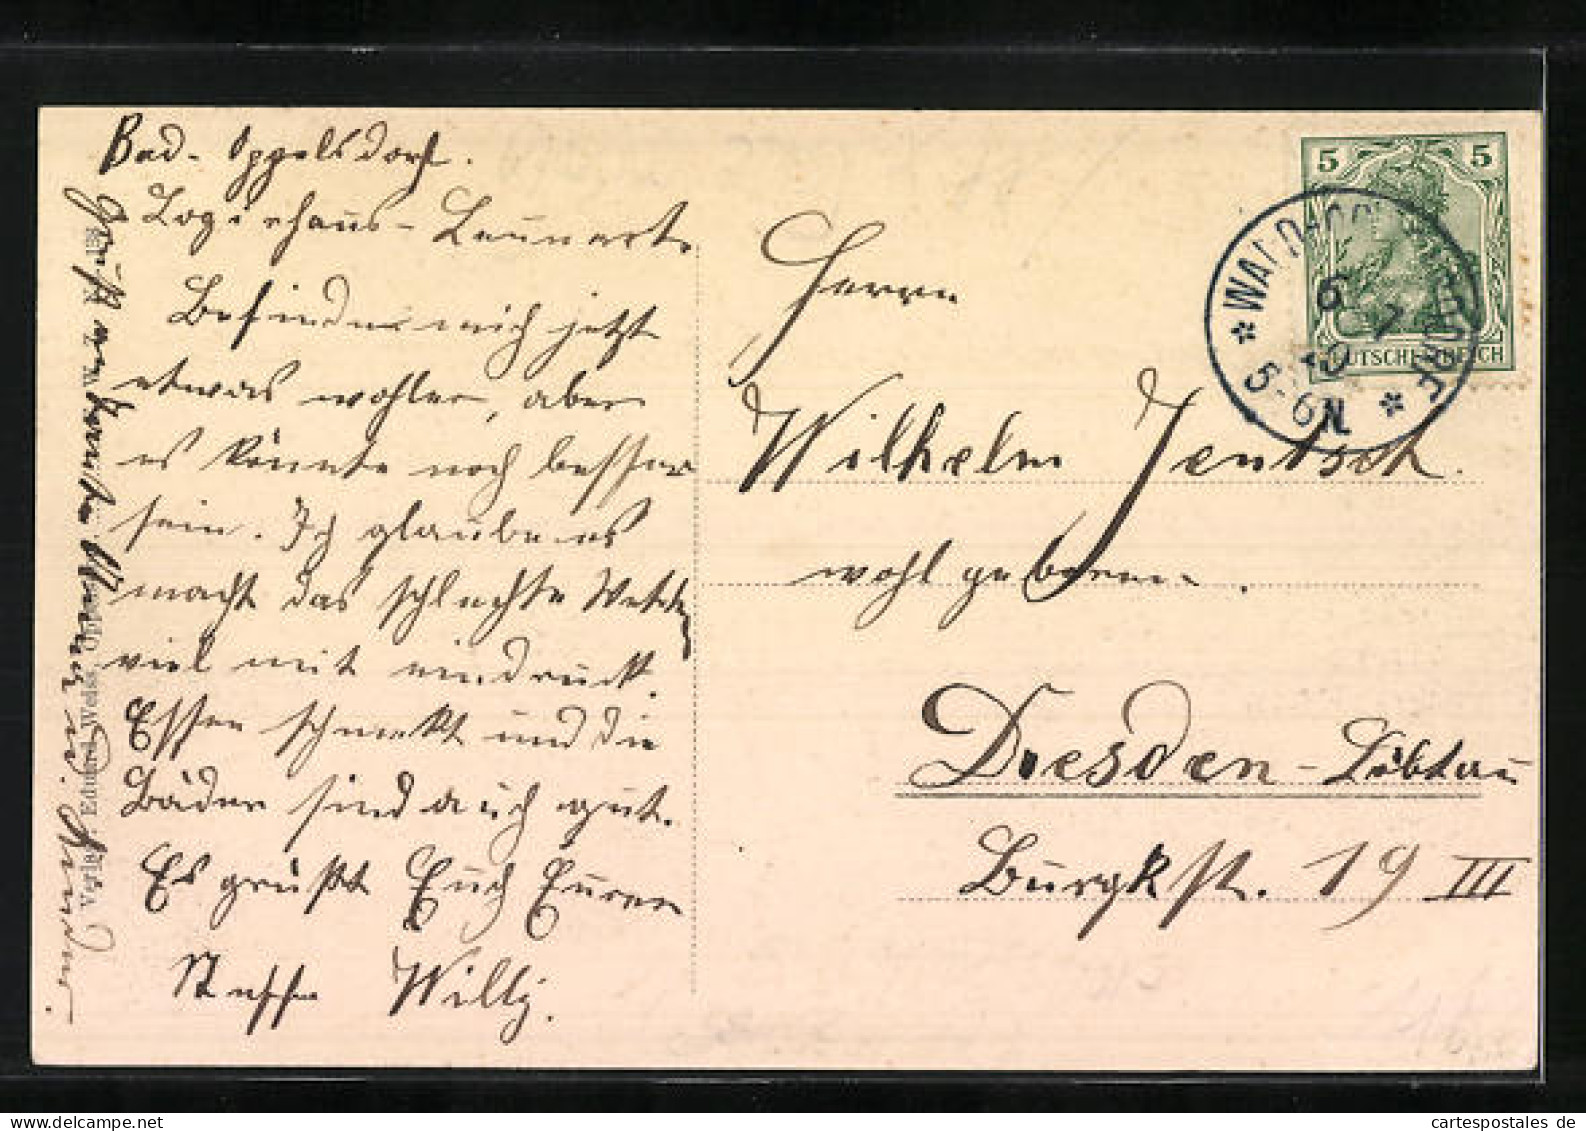 Bad-Oppelsdorf.
Logierhaus-
Befinde mich jetzt
etwas wohler, aber
es könnte noch besser
sein. Ich glaube es
macht das schlechte Wetter
viel mit eindruck.
Essen schmekt und die
Bäder sind auch gut.
Es grüßt Euch Euren
Neffe Willy.
Verlag Eduard Weiss,
5 5
DEUTSCHES REICH
* WALD
6 7
10
5-6N *
Herrn
Wilhelm Jentsch.
wohlgeboren.
Dresden-Löbtau
Burgkst. 19 III
cartespostales de